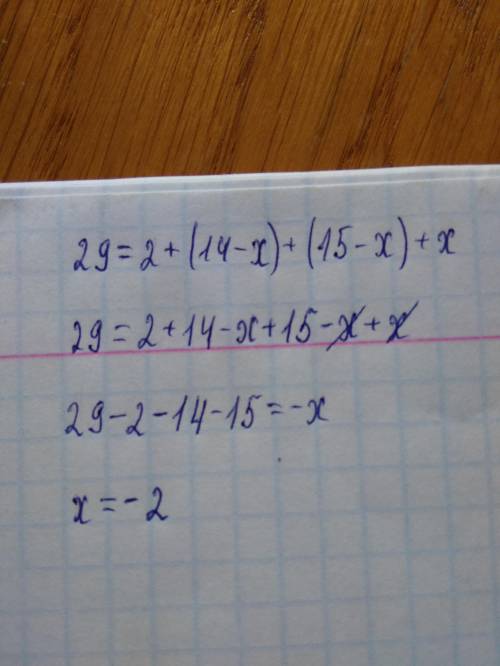 29 = 2 + (14 - x) + (15 - x) + x
29 = 2 + 14 - x + 15 - x + x
29 - 2 - 14 - 15 = - x
x = - 2